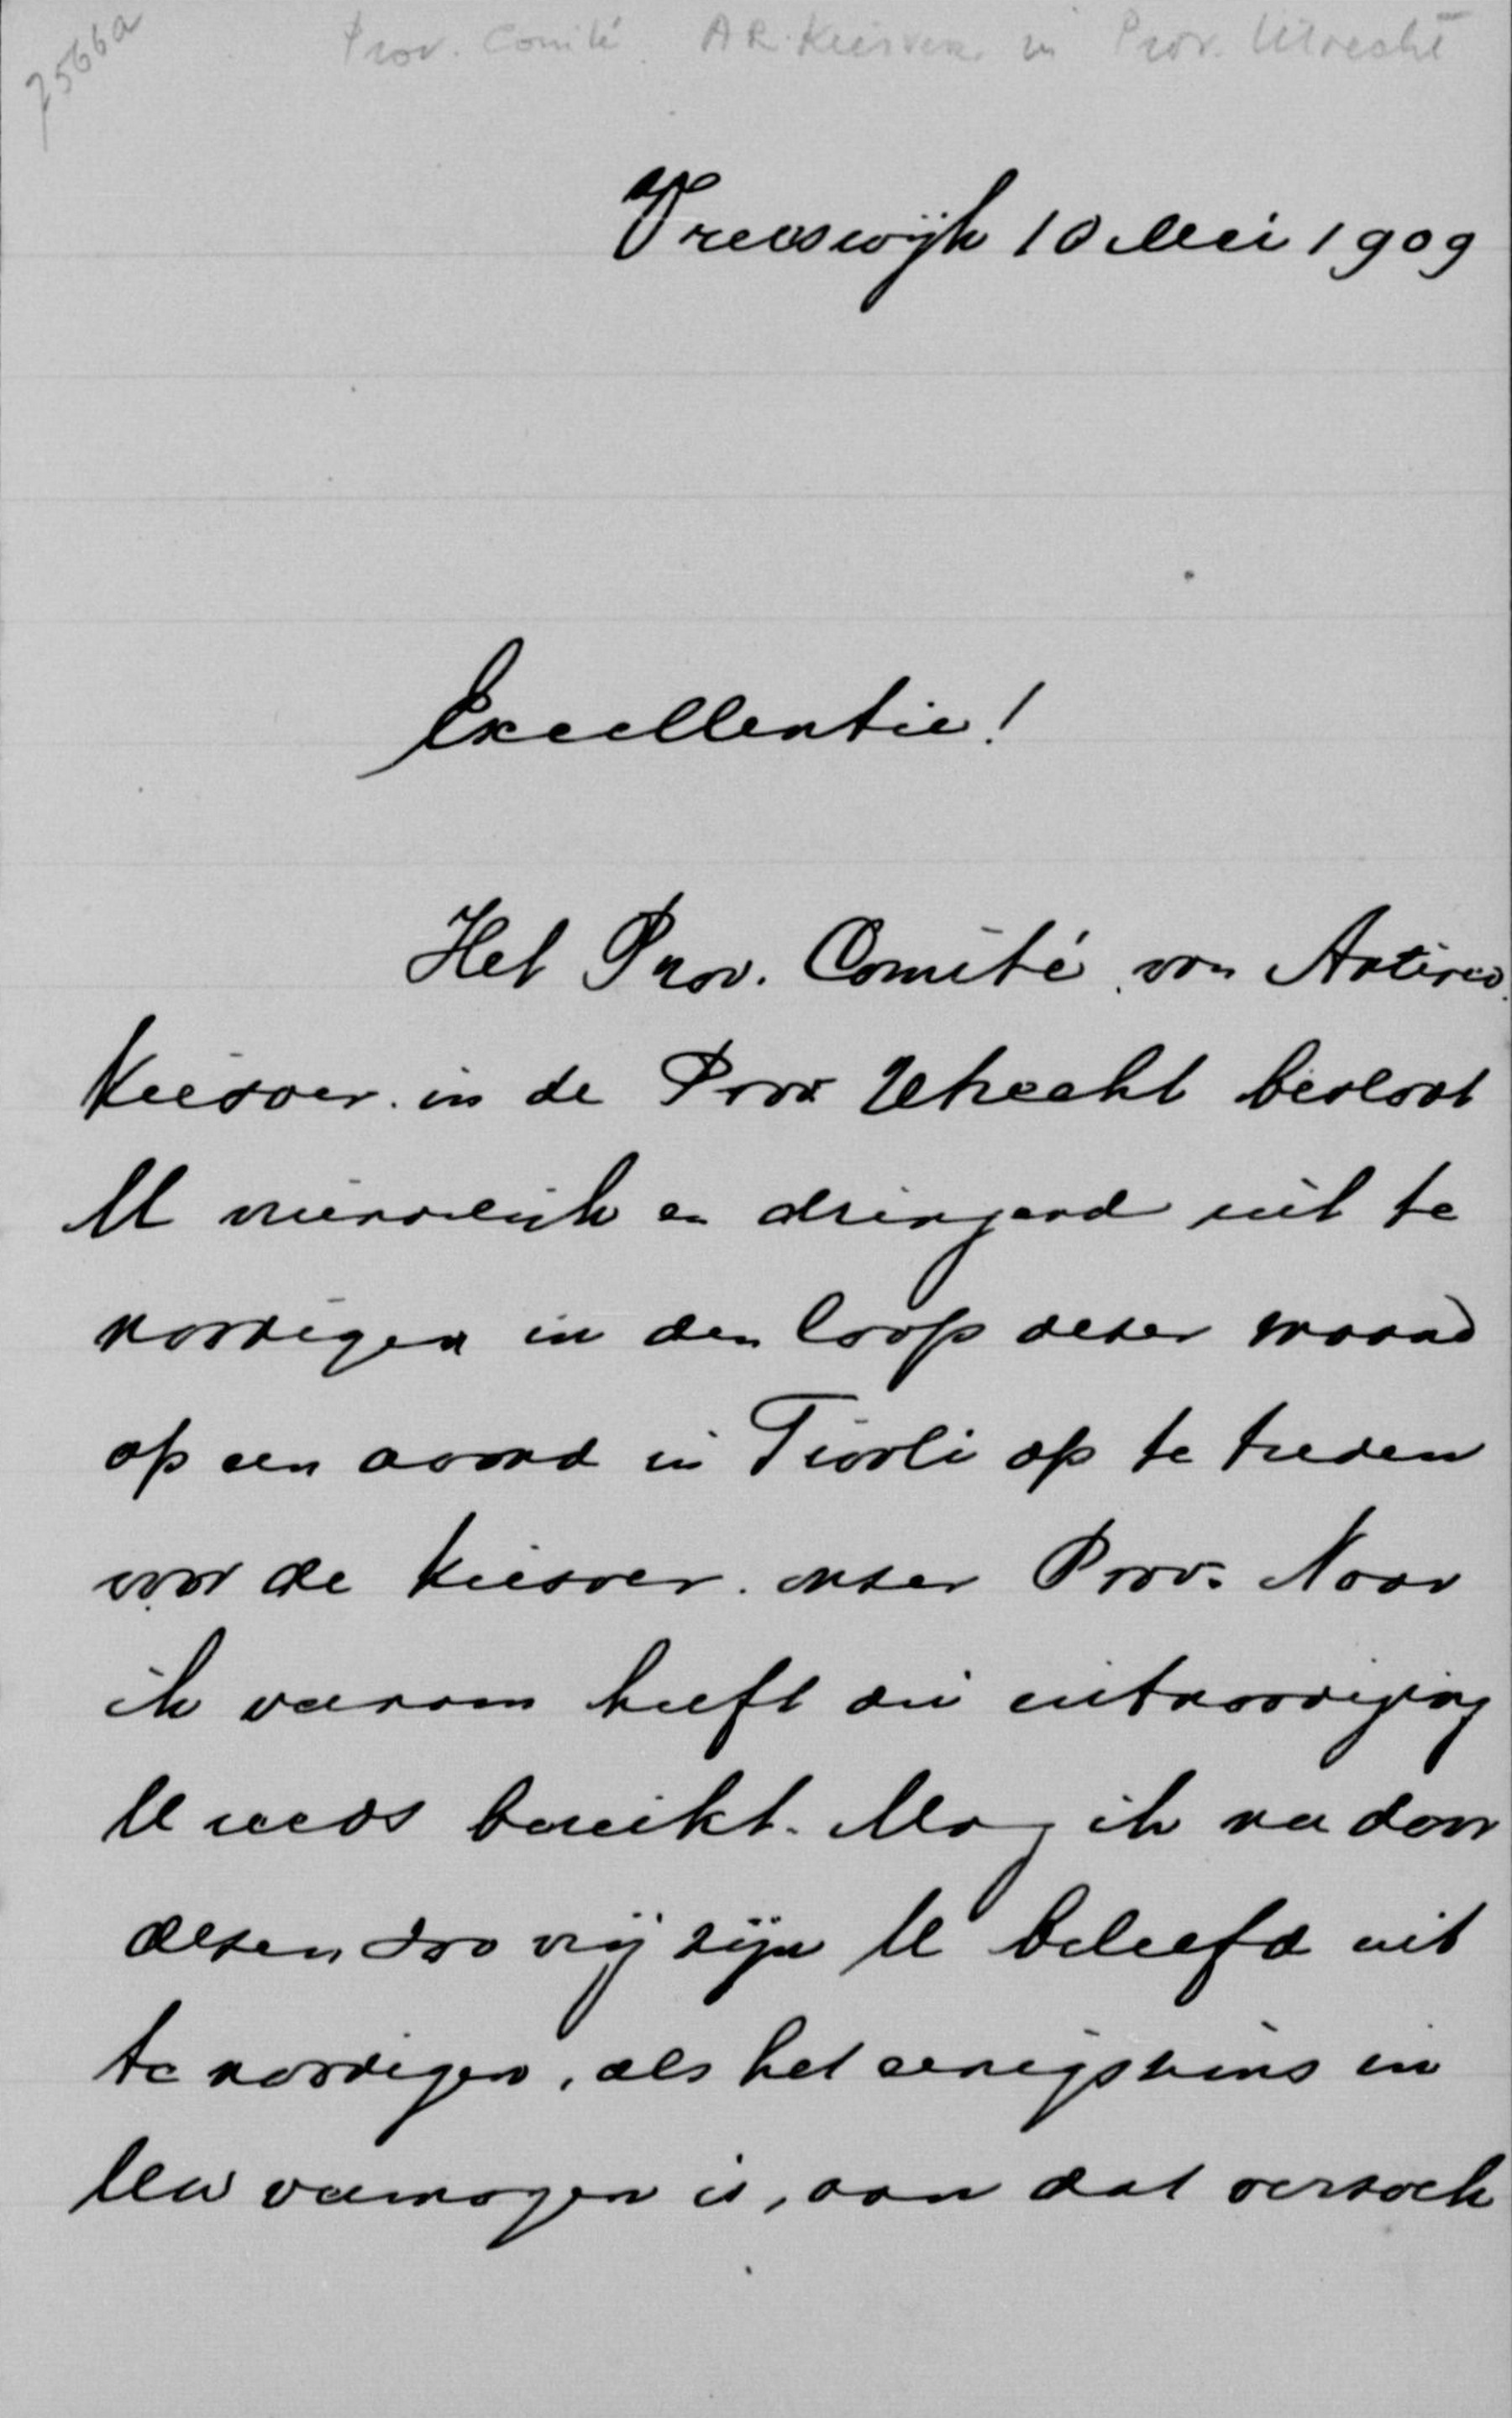 7566a
Prov. Comité A.R. Kiesver. in Prov. Utrecht
Vreeswijk 10 Mei 1909
Excellentie!
Het Prov. Comité van Antirev.
Kiesver. in de Prov. Utrecht besloot
U vriendelijk en dringend uit te
noodigen in den loop dezer maand
op een avond in Tivoli op te treden
voor de Kiesver. onzer Prov. Naar
ik vernam heeft die uitnoodiging
U reeds bereikt. Mag ik nu door
dezen zoo vrij zijn U beleefd uit
te noodigen, als het eenigszins in
Uw vermogen is, aan dat verzoek